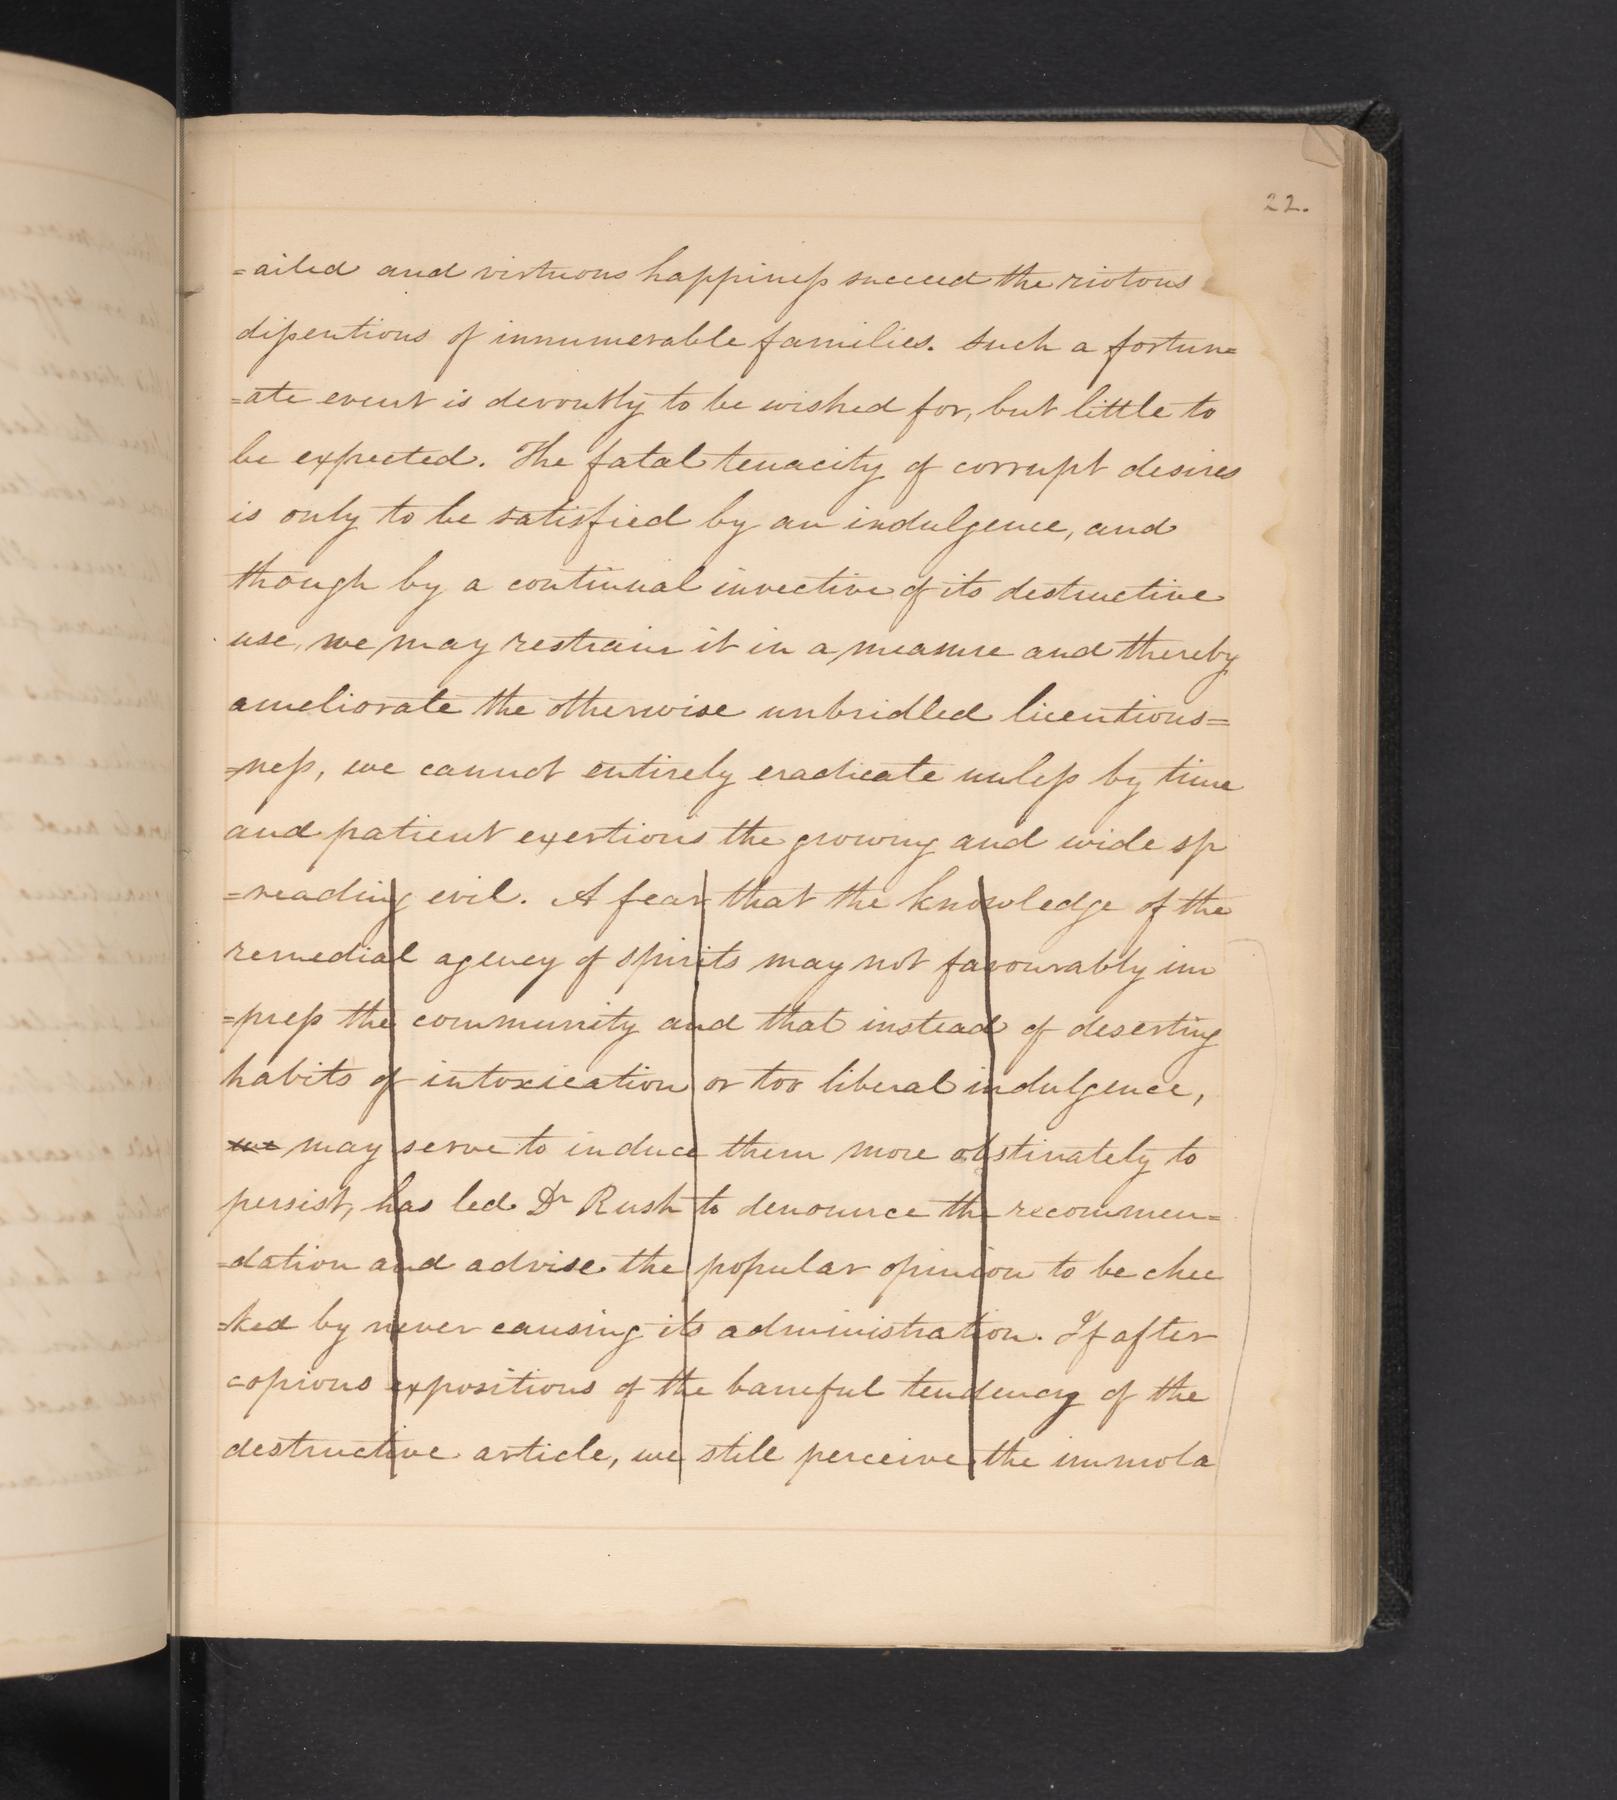 22.
=ailed and virtuous happiness succeed the riotous
dissentions of innumerable families. Such a fortun=
=ate event is devoutly to be wished for, but little to
be expected. The fatal tenacity of corrupt desires
is only to be satisfied by an indulgence, and
though by a continual invective of its destructive
use, we may restrain it in a measure and thereby
ameliorate the otherwise unbridled licentious=
=ness, we cannot entirely eradicate unless by time
and patient exertions the growing and wide sp
=reading evil. A fear that the knowledge of the
remedial agency of spirits may not favourably im
=press the community and that instead of deserting
habits of intoxication or too liberal indulgence,
we may serve to induce them more obstinately to
persist, has led Dr Rush to denounce the recommen=
=dation and advise the popular opinion to be chec
=ked by never causing its administration. If after
copious expositions of the baneful tendency of the
destructive article, we still perceive the immola